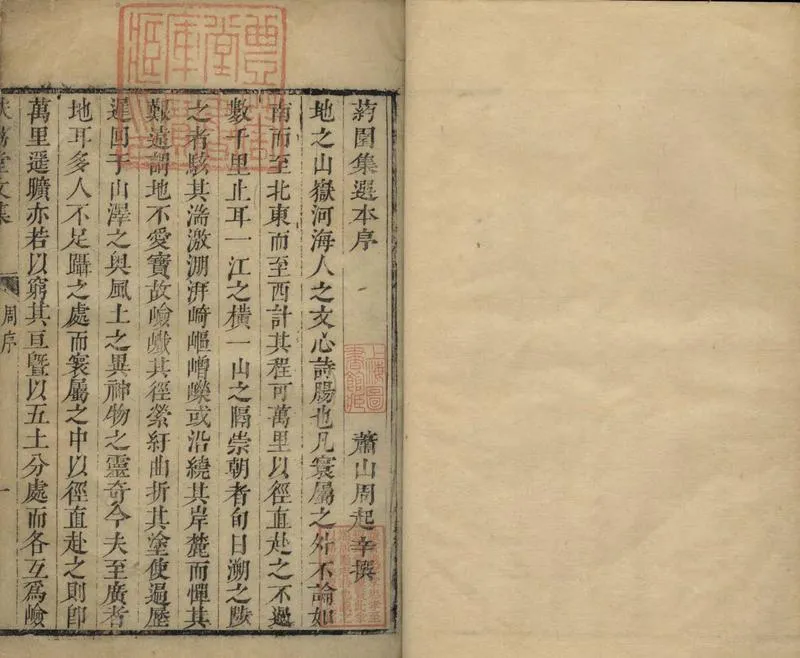 葯圃集選本序
蕭山周起辛撰
地之山嶽河海人之文心詩腸也凡寰屬之外不論如
南而至北東而至西計其程可萬里以徑直赴之不過
數千里止耳一江之橫一山之隔崇朝者旬日溯之陟
之者駭其湍激淜湃崎嶇嶒嶸或沿繞其岸麓而憚其
艱遠謂地不愛寶故嶮巇其徑縈紆曲折其塗使過歷
遲回于山澤之奥風土之異神物之靈奇今夫至廣者
地耳多人不足躡之處而寰屬之中以徑直赴之則卽
萬里遥曠亦若以窮其亘曁以五土分處而各互爲嶮
堂文集
周序
一
豊
堂
庫
上海圖
書館藏